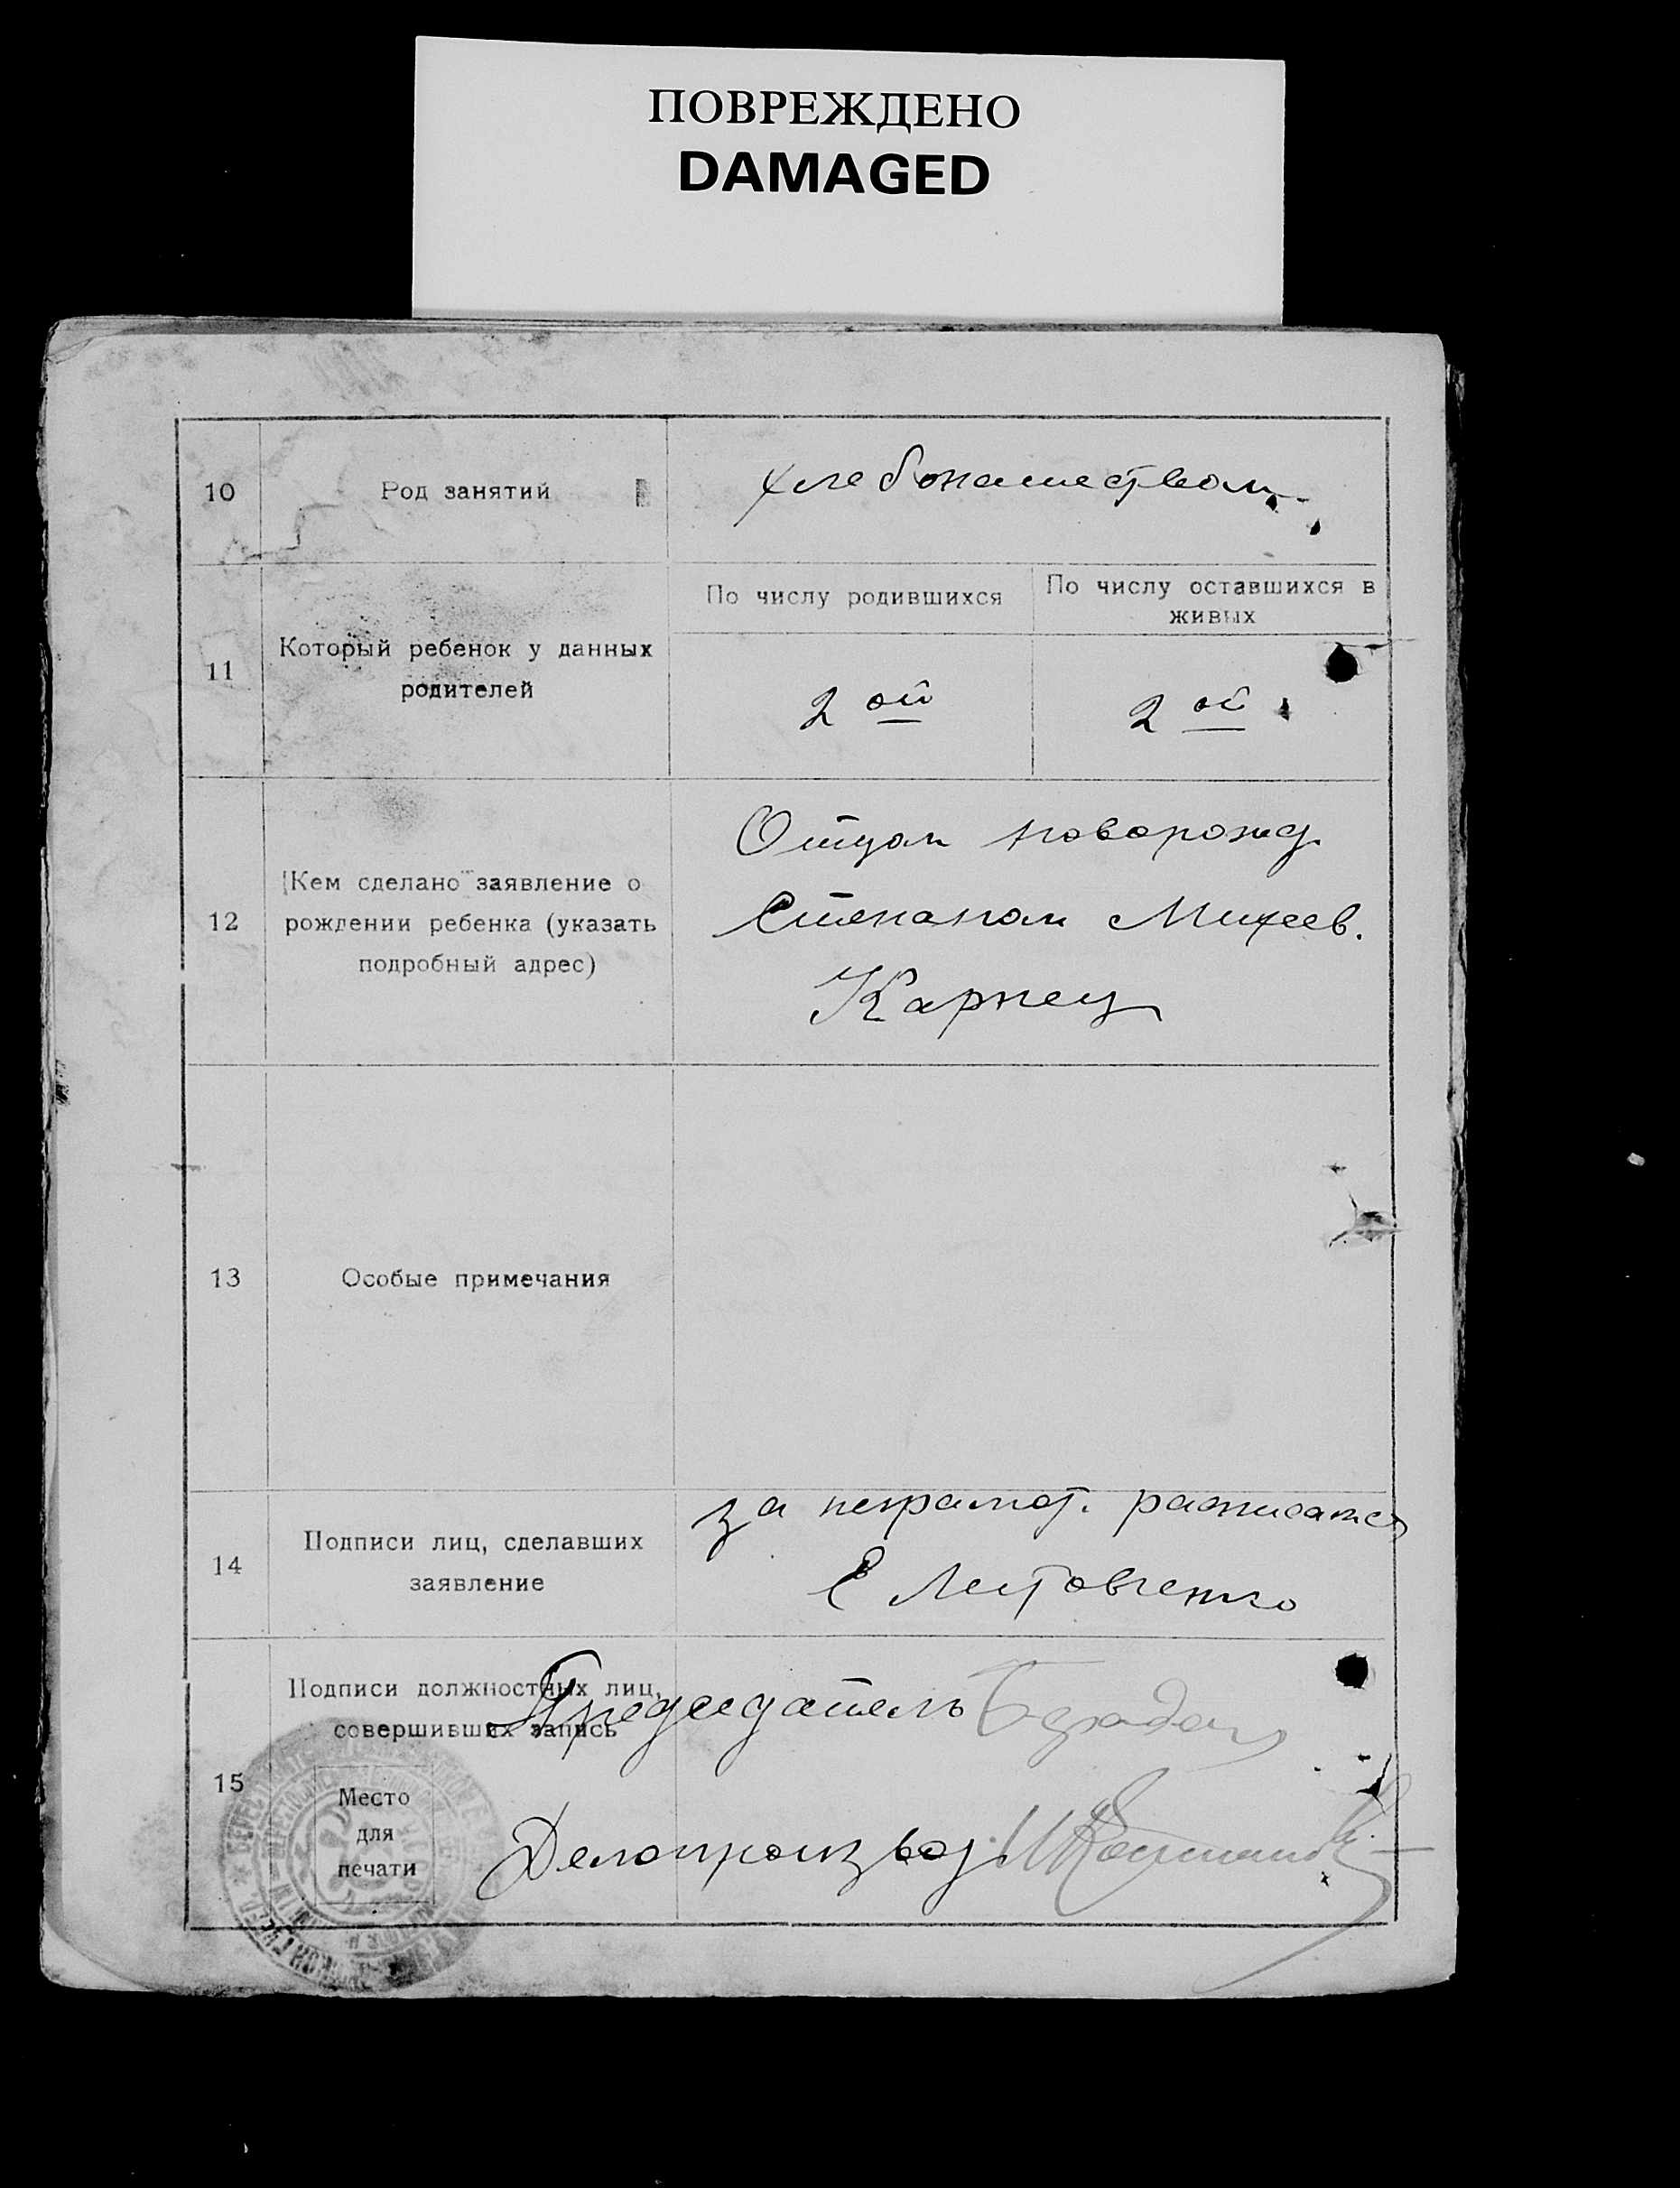 ПОВРЕЖДЕНО
DAMAGED
10 Род занятий хлебопашеством
11 Который ребенок у данных
родителей
По числу родившихся
По числу оставшихся в
живых
2 ой
2 ой
12 Кем сделано заявление о
рождении ребенка (указать
подробный адрес)
Отцом новорожд.
Степаном Михеев.
Карпец
13 Особые примечания
14 Подписи лиц, сделавших
заявление
за неграмот. расписался
Е Листовченко
15 Подписи должностных лиц,
совершивших запись
Председатель
Место
для
печати
Делопроизвод.